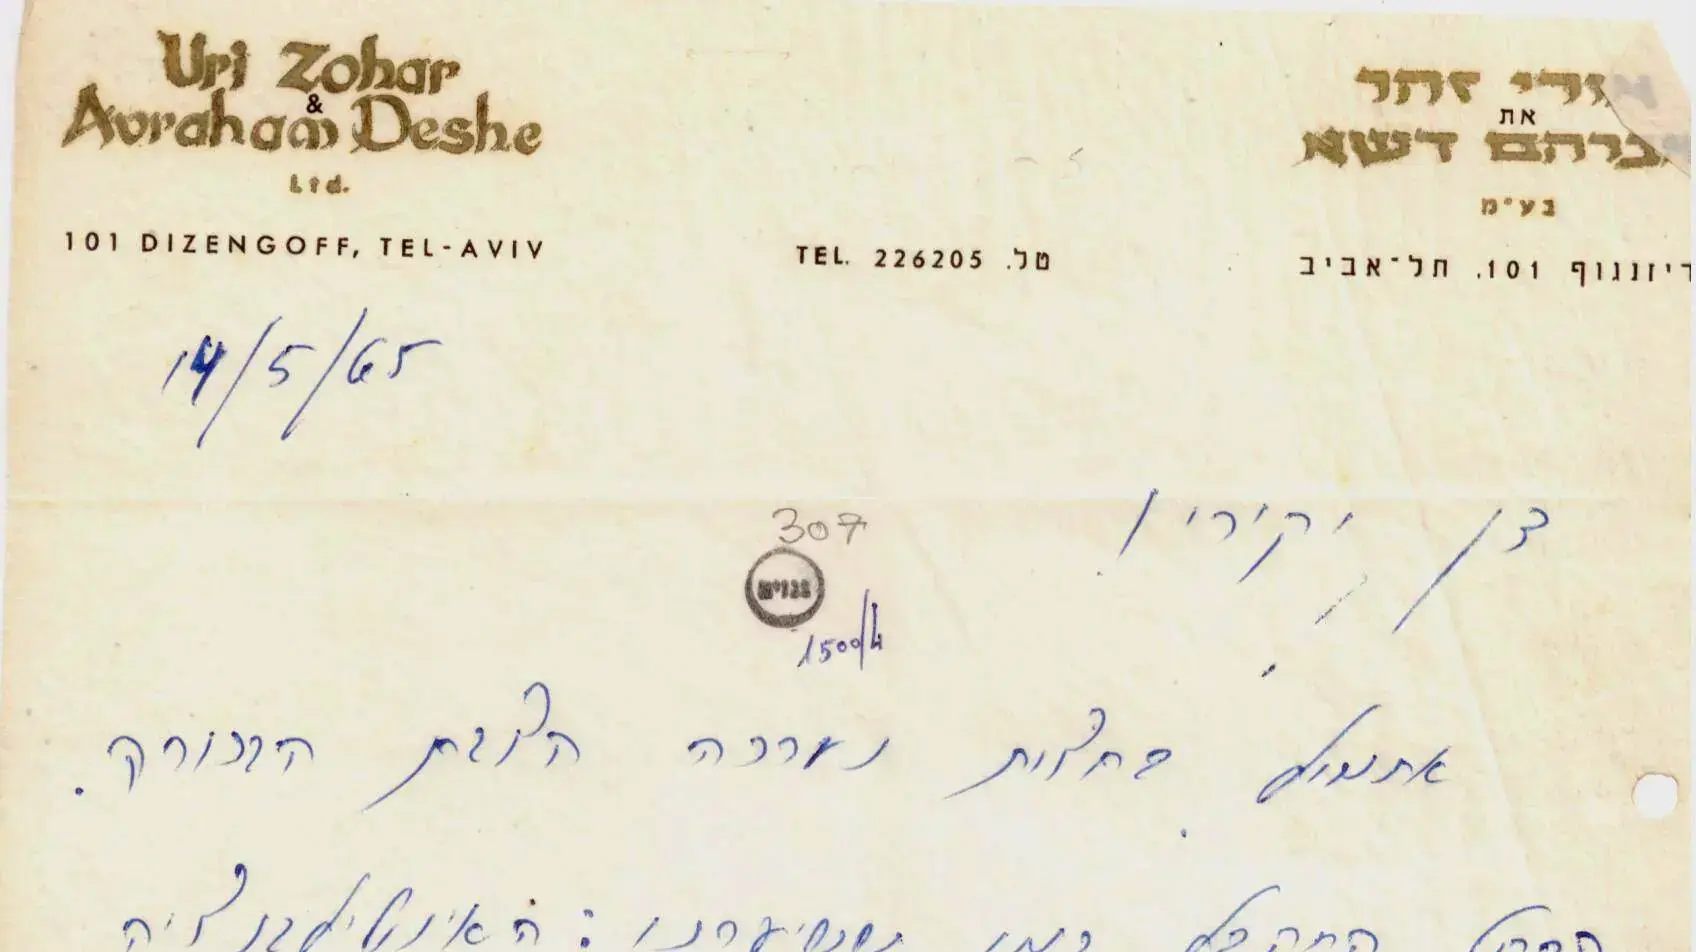 Uri Zohar
&
Avraham Deshe
Ltd.
101 DIZENGOFF, TEL-AVIV
TEL. 226205 טל.
אורי זהר
את
אברהם דשא
בע״מ
דיזנגוף 101, תל-אביב
14/5/65
דן יקירי
307
1500/4
אתמול בחצות נערכה הצגת הבכורה.
הכל התקבל כמו ששיערנו: האינטליגנציה